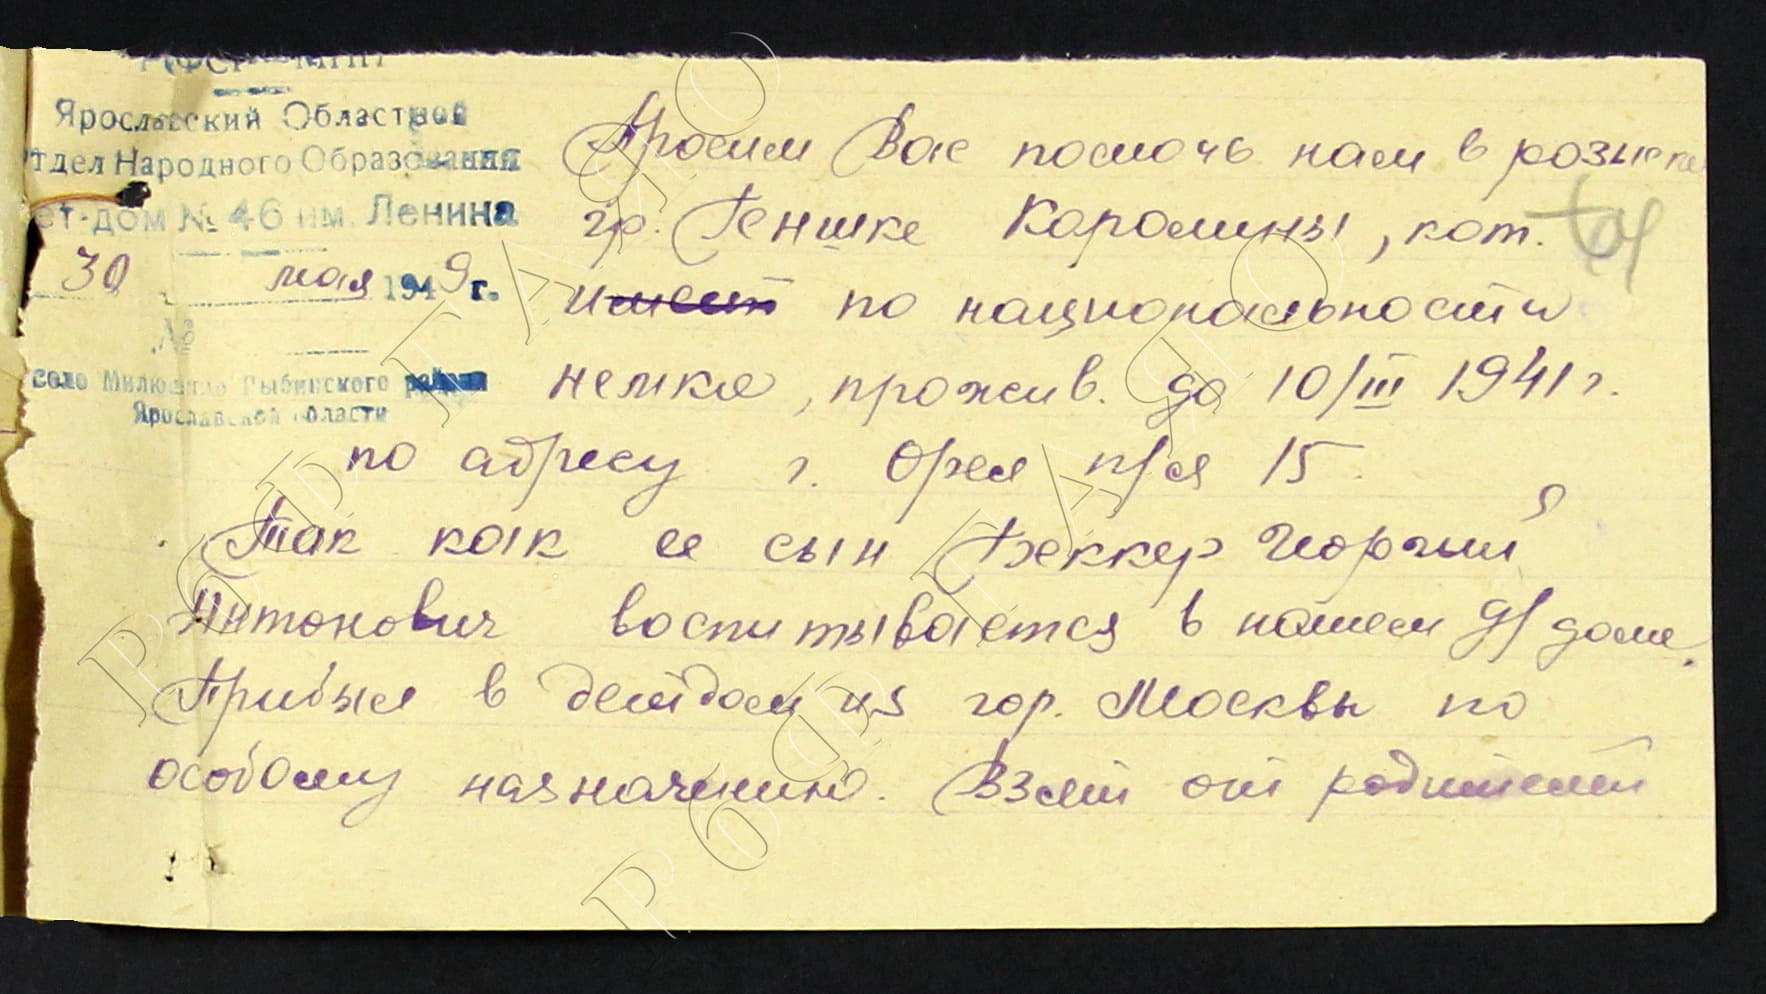 РСФСР МПНТ
Ярославский Областной
Отдел Народного Образования
Дет-дом № 46 им. Ленина
30 мая 1949 г.
№
село Милюшино Рыбинского района
Ярославской области
Просим Вас помочь нам в розыске
гр. Геншке Каролины, кот.
имеет по национальности
немка, прожив. до 10/III 1941 г.
по адресу г. Орел п/я 15.
Так как ее сын Беккер Георгий
Антонович воспитывается в нашем д/доме.
Прибыл в детдом из гор. Москвы по
особому назначению. Взят от родителей
РбФ ГАЯО
РбФ ГАЯО